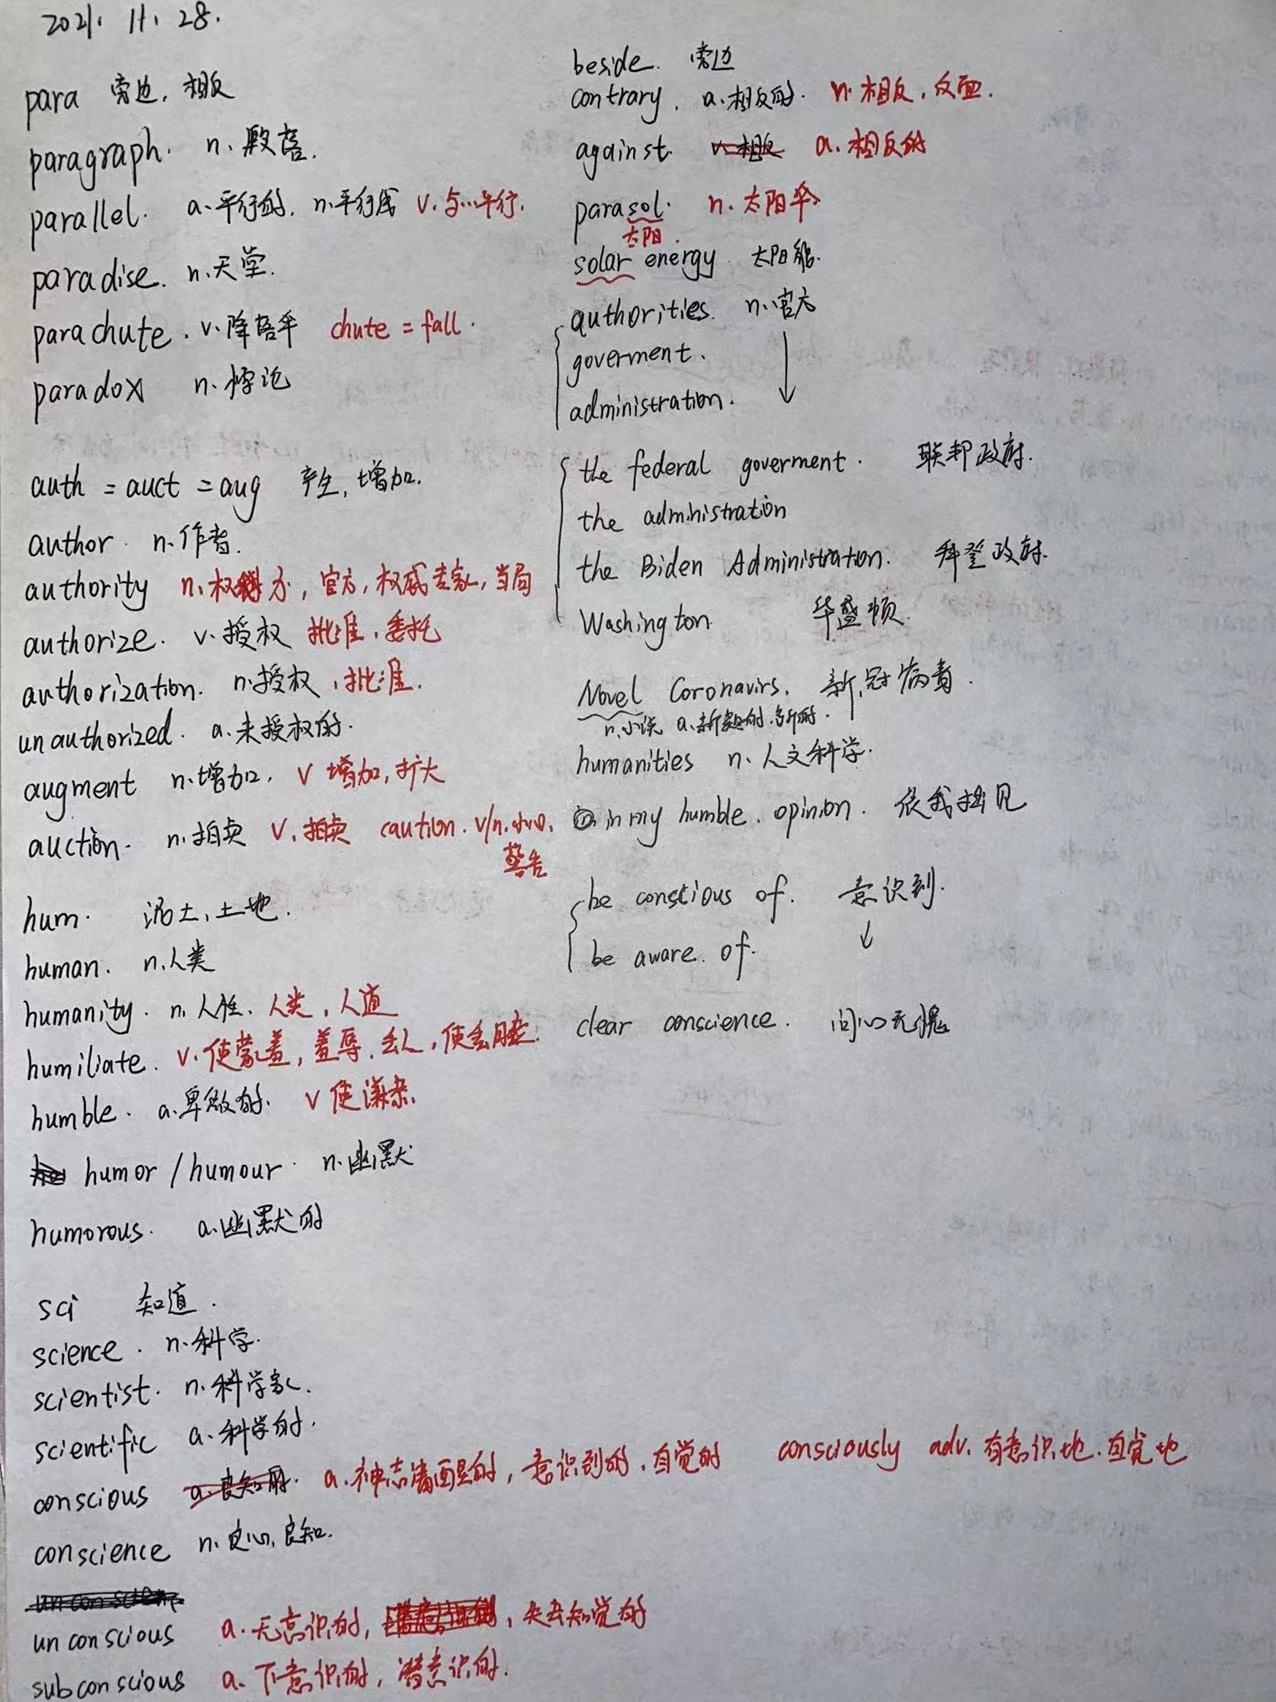 2021. 11. 28.
para 旁边, 相反
paragraph. n. 段落.
parallel. a.平行的, n.平行线 v.与…平行.
paradise. n.天堂.
parachute. v.降落伞 chute = fall.
paradox n.悖论
auth = auct = aug 产生, 增加.
author. n.作者.
authority n.权力, 官方, 权威专家, 当局
authorize. v.授权 批准, 委托
authorization. n.授权, 批准.
unauthorized. a.未授权的.
augment n.增加, v 增加, 扩大
auction. n.拍卖 v.拍卖 caution. v/n.小心,
警告
hum. 泥土, 土地.
human. n.人类
humanity. n.人性. 人类, 人道
humiliate. v.使蒙羞, 羞辱, 丢人, 使丢脸.
humble. a.卑微的. v 使谦卑.
humor / humour. n.幽默
humorous. a.幽默的
sci 知道.
science. n.科学.
scientist. n.科学家.
scientific a.科学的.
conscious a.良知的. a.神志清醒的, 意识到的, 自觉的 consciously adv.有意识地. 自觉地
conscience n.良心, 良知.
unconscious a.无意识的, 失去知觉的
subconscious a.下意识的, 潜意识的.
beside. 旁边
contrary. a.相反的. n.相反, 反面.
against v.相反 a.相反的
parasol. n.太阳伞
太阳.
solar energy. 太阳能.
authorities. n.官方
goverment.
administration.
the federal goverment. 联邦政府.
the administration
the Biden Administration. 拜登政府.
Washington. 华盛顿.
Novel Coronavirs. 新冠病毒.
n.小说 a.新颖的.新的.
humanities n.人文科学.
in my humble. opinion. 依我拙见
be constious of. 意识到.
be aware. of.
clear conscience. 问心无愧